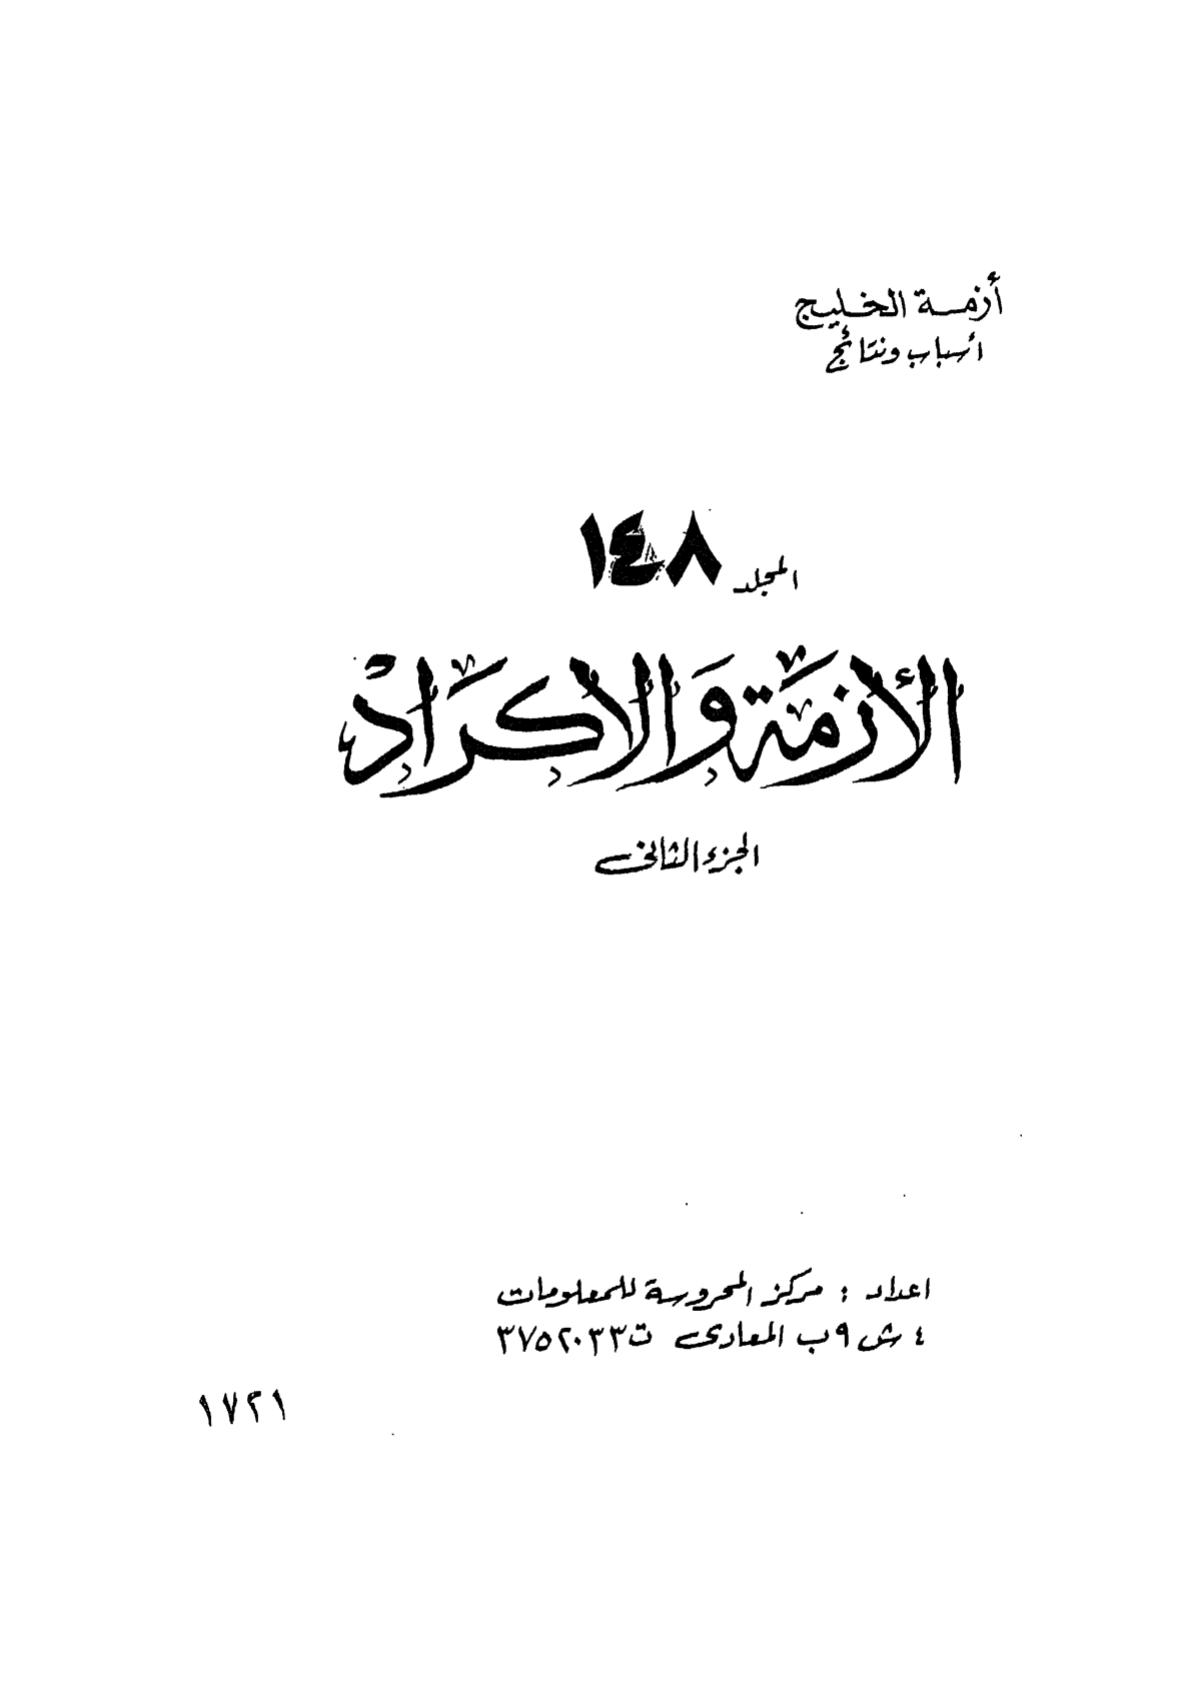 أزمة الخليج
أسباب ونتائج
المجلد ١٤٨
الأزمَة وَالاكرَادْ
الجزء الثانى
اعداد : مركز المحروسة للمعلومات
٤ ش ٩ب المعادى ت ٣٧٥٢٠٣٣
١٧٢١